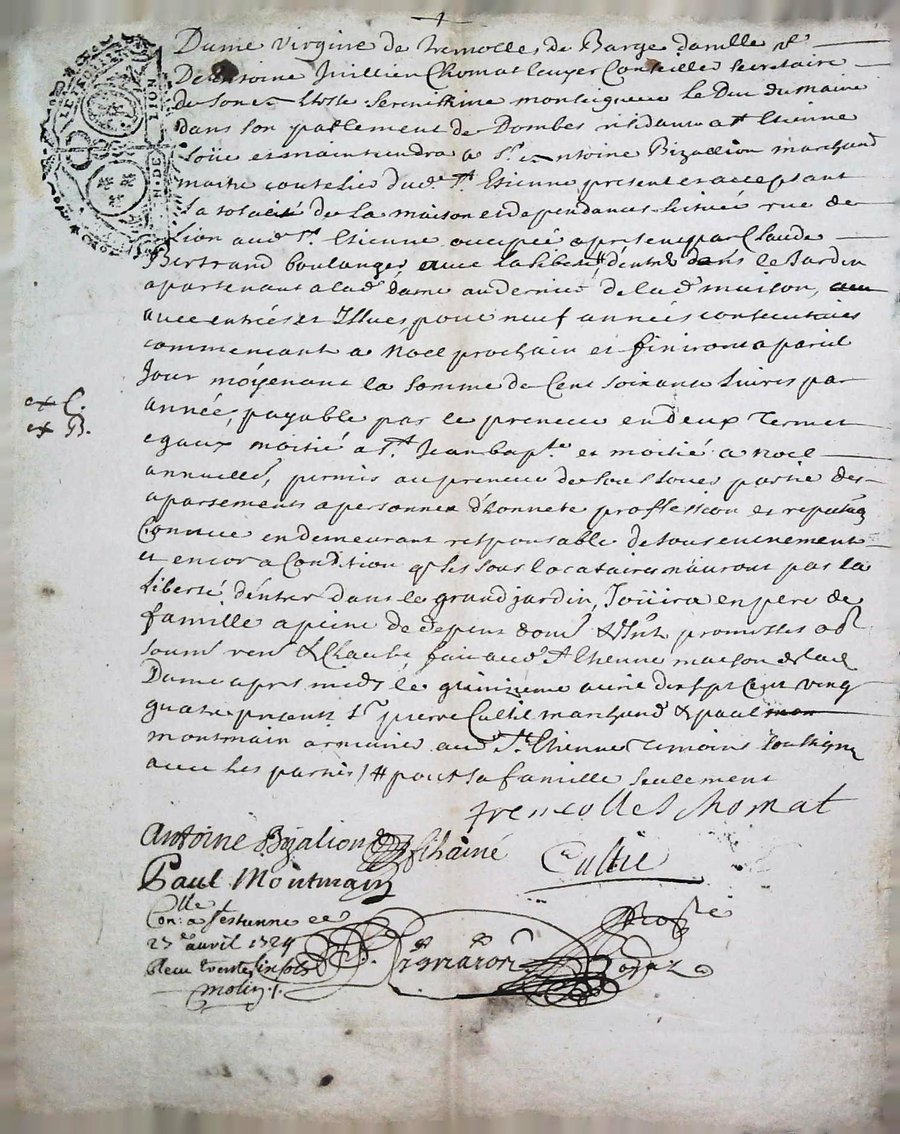 Dame Virgine de Tremolles de Barge da
De Antoine Jullien Chomat Ecuyer Conseiller Secretaire
de son Serenissime monseigneur le Duc dumaine
dans son parlement de Dombes residante a St Etienne
Loüe et maintiendra a Sr Antoine Bizallion marchand
maitre coutelier dud. St Etienne present et acceptant
La totalité de la maison et dependances Scituée rue de
Lion aud. St. Etienne occupée apresent par Claude
Bertrand boulanger avec la liberté # d'entrer dans le Jardin
apartenant a lad. dame au dernier de lad. maison,
avec entrées et Issues, pour neuf années consecutives
commencant a noel prochain et finiront a pareil
Jour moyenant la somme de Cent soixante Livres par
année, payable par le preneur en deux Termes
egaux moitié a St. Jean bapte. et moitié a noel
annuelle, permis au preneur de sous Louer partie des
apartements a personnes d'honnete proffession et reputaon
Connue en demeurant responsable de tous evenement
et encor a Condition q. les sous locataires n'auront pas la
Liberté d'entrer dans le grand jardin, Joüira en pere de
famille a peine de depens dom. & Int. promettes ob.
soum. ren. & Clauses, fait aud. St Etienne maison de lad.
Dame apres midy le quinzieme avril sept Cent vingt
quatre presents Sr. pierre Cultil marchand & paul
montmain armurier aud. St. Etienne temoins soussignés
avec les parties / # pour sa famille seulement
Tremolles Chomat
Antoine Bijalion
Paul Montmain
Con: a St estienne ce
23 e avril 1724
Receu trente cinq sols
molin
LE
LION
N. DE